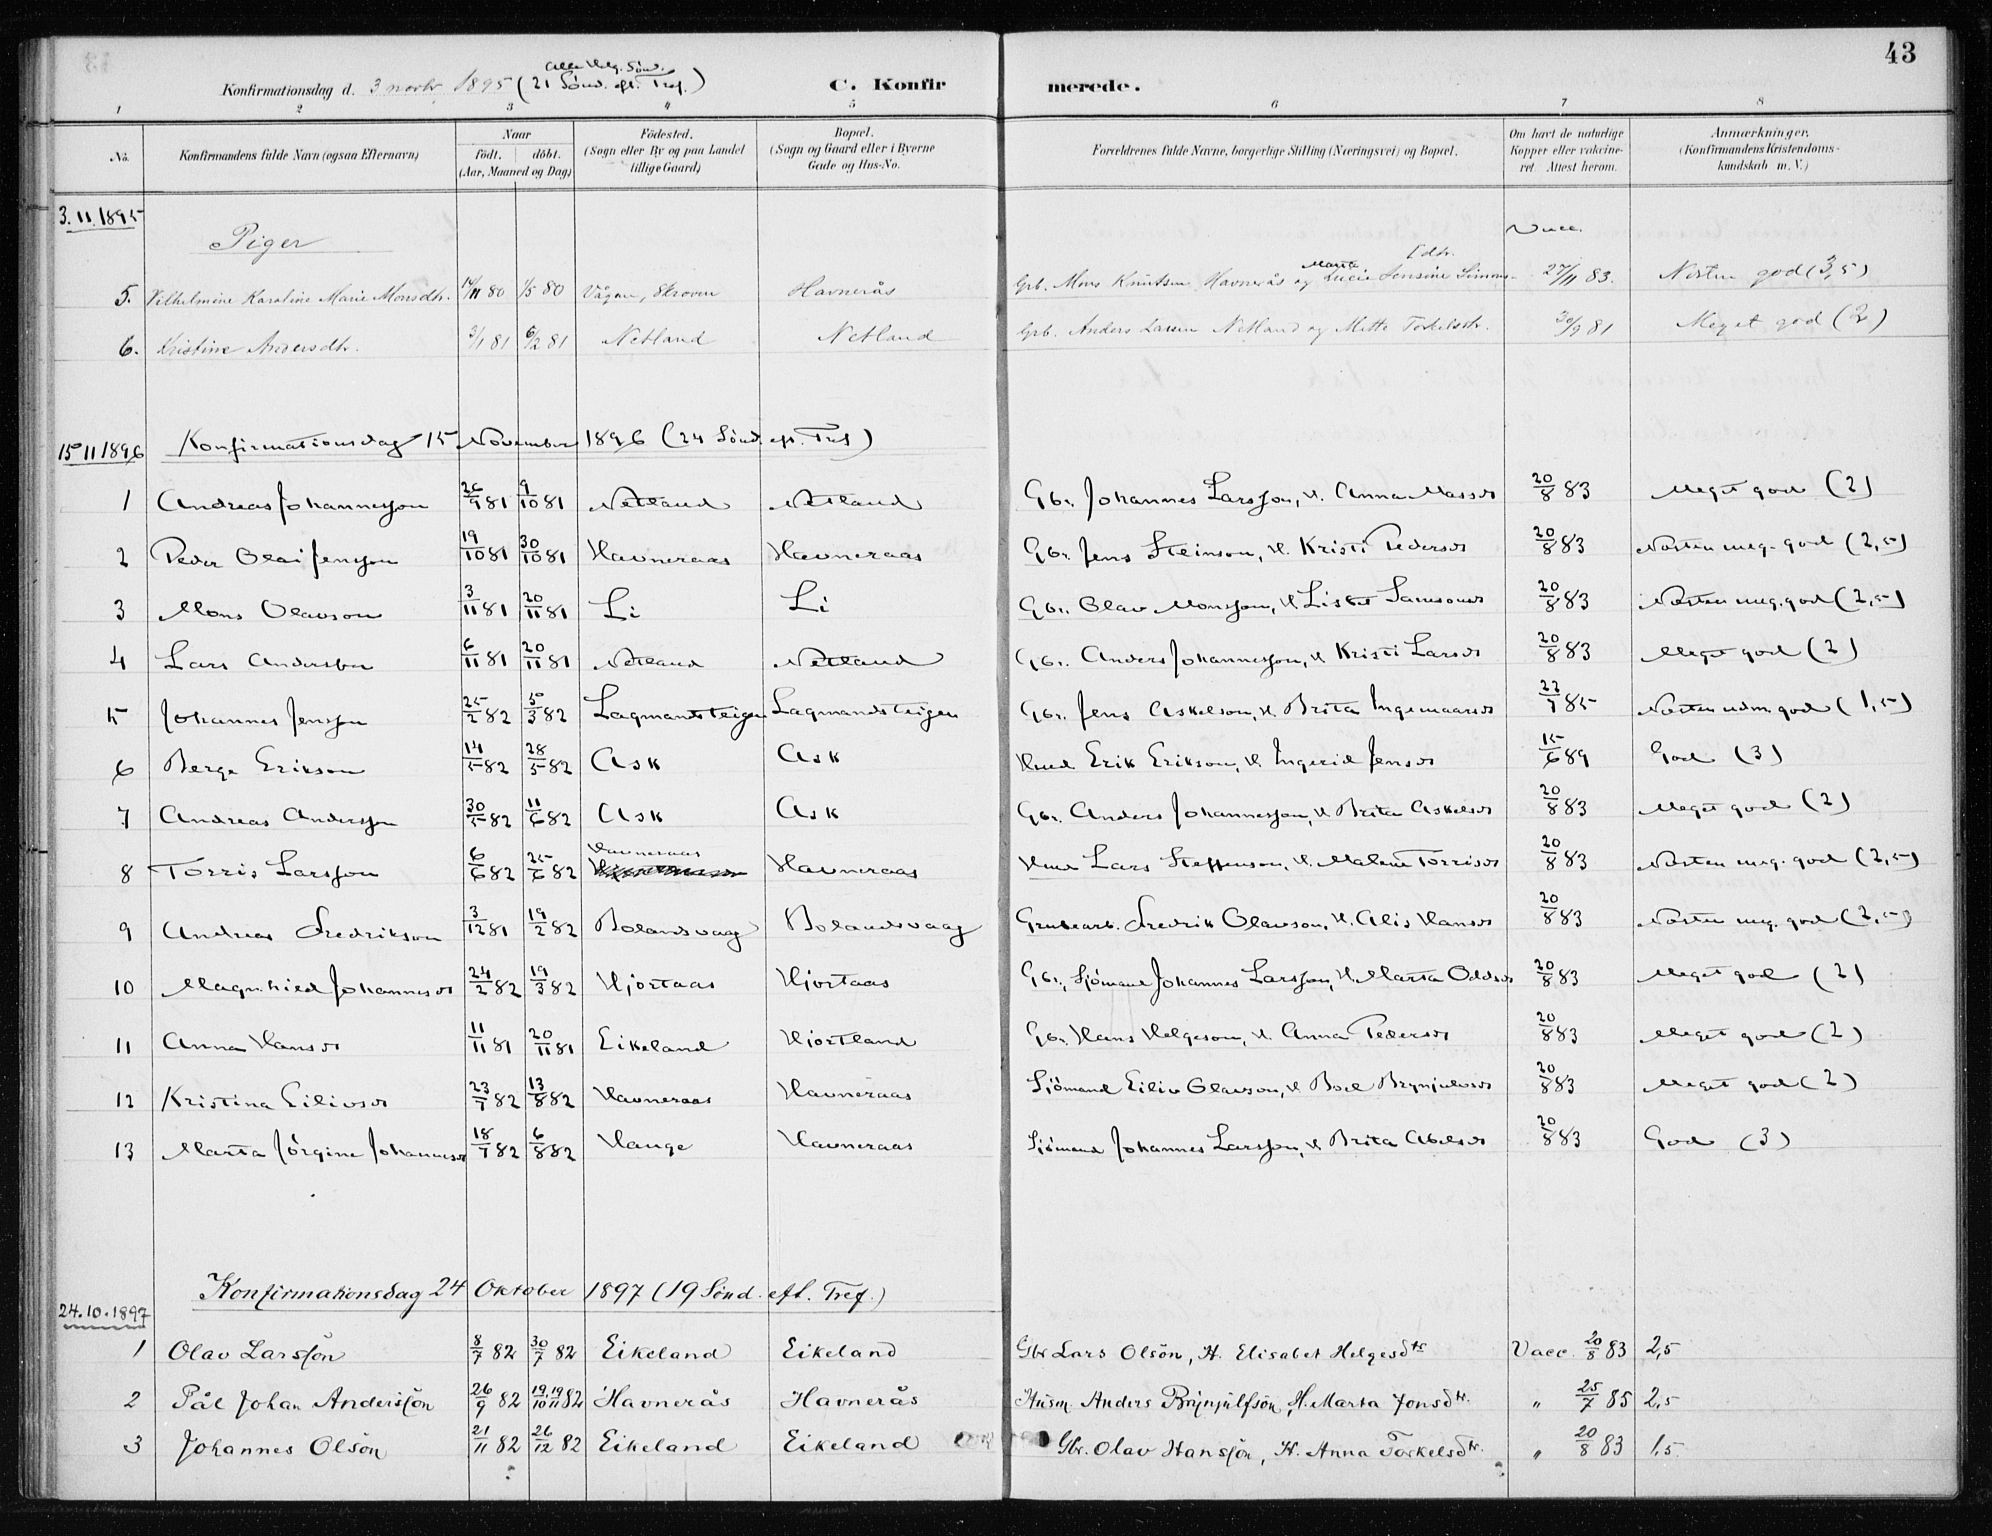 43
Konfirmationsdag d. 3 novbr 1895 (21 Sönd. eft. Tref.) C. Konfirmerede.
Alle Helg. Sönd.
1 2 3 4 5 6 7 8
No. Konfirmandens fulde Navn (ogsaa Efternavn) Naar födt. döbt. (Aar, Maaned og Dag) Födested. (Sogn eller By og paa Landet tillige Gaard) Bopæl. (Sogn og Gaard eller i Byerne Gade og Hus-No. Forældrenes fulde Navne, borgerlige Stilling (Næringsvei) og Bopæl. Om havt de naturlige Kopper eller vakcineret. Attest herom. Anmærkninger. (Konfirmandens Kristendomskundskab m. V.)
3.11.1895
Piger Vacc.
5. Vilhelmine Karoline Marie Monsdtr. 14/11 80 1/5 80 Vågan, Skroven Havnerås Grb. Mons Knutsen Havnerås og Marta Lucie Jensine Simonsdtr. 27/11 83. Nesten god (3,5)
6. Kristine Andersdtr. 3/1 81 6/2 81 Netland Netland Grb. Anders Larsen Netland og Mette Torkelsdtr. 30/9 81 Meget god (2)
15 11 1896 Konfirmationsdag 15 November 1896 (24 Sönd. eft. Tref)
1 Andreas Johannesson 26/9 81 9/10 81 Netland Netland Gbr. Johannes Larsson, H. Anna Massdr 20/8 83 Meget god (2)
2 Peder Olai Jensson 19/10 81 30/10 81 Havneraas Havneraas Gbr. Jens Steinson, H. Kristi Pedersdr 20/8 83 Næsten meg. god (2,5)
3 Mons Olavson 3/11 81 20/11 81 Li Li Gbr. Olav Monsson, H. Lisbet Samsonsdr 20/8 83 Næsten meg. god (2,5)
4 Lars Anderson 6/11 81 20/11 81 Netland Netland Gbr. Anders Johannesson, H. Kristi Larsdr 20/8 83 Meget god (2)
5 Johannes Jensson 25/2 82 5/3 82 Lagmandsteigen Lagmandsteigen Gbr. Jens Askelson, H. Brita Ingemaarsdr 22/7 85 Næsten udm. god (1,5)
6 Berge Erikson 14/5 82 28/5 82 Ask Ask Hmd Erik Erikson, H. Ingerid Jensdr 15/6 89 God (3)
7 Andreas Andersson 30/5 82 11/6 82 Ask Ask Gbr. Anders Johannesson, H. Brita Askelsdr 20/8 83 Meget god (2)
8 Torris Larsson 6/6 82 25/6 82 Havneraas Havneraas Hmd Lars Steffenson, H. Malene Torrisdr 20/8 83 Næsten meg. god (2,5)
9 Andreas Fredrikson 3/12 81 19/2 82 Bolandsvaag Bolandsvaag Grubearb. Fredrik Olavson, H. Alis Hansdr 20/8 83 Næsten meg. god (2,5)
10 Magnhild Johannesdr 24/2 82 19/3 82 Hjortaas Hjortaas Gbr., Sjömand Johannes Larsson, H. Marta Oddsdr 20/8 83 Meget god (2)
11 Anna Hansdr 11/11 81 20/11 81 Eikeland Hjortland Gbr. Hans Helgeson, H. Anna Pedersdr 20/8 83 Meget god (2)
12 Kristina Eilivsdr 23/7 82 13/8 82 Havneraas Havneraas Sjömand Eiliv Olavson, H. Boel Brynjulvsdr 20/8 83 Meget god (2)
13 Marta Jörgine Johannesdr 18/7 82 6/8 82 Hauge Havneraas Sjömand Johannes Larsson, H. Brita Abelsdr 20/8 83 God (3)
Konfirmationsdag 24 Oktober 1897 (19 Sönd. eft. Tref.)
24.10.1897
1 Olav Larssön 8/7 82 30/7 82 Eikeland Eikeland Gbr Lars Olsön, H. Elisabet Helgesdtr Vacc. 20/8 83 2,5
2 Pål Johan Anderssön 26/9 82 19/10 19/11 82 Havnerås Havnerås Husm. Anders Brynjulfsön, H. Marta Jonsdtr. " 25/7 85 2,5
3 Johannes Olsön 21/11 82 26/12 82 Eikeland Eikeland Gbr. Olav Hanssön, H. Anna Torkelsdtr. " 20/8 83 1,5